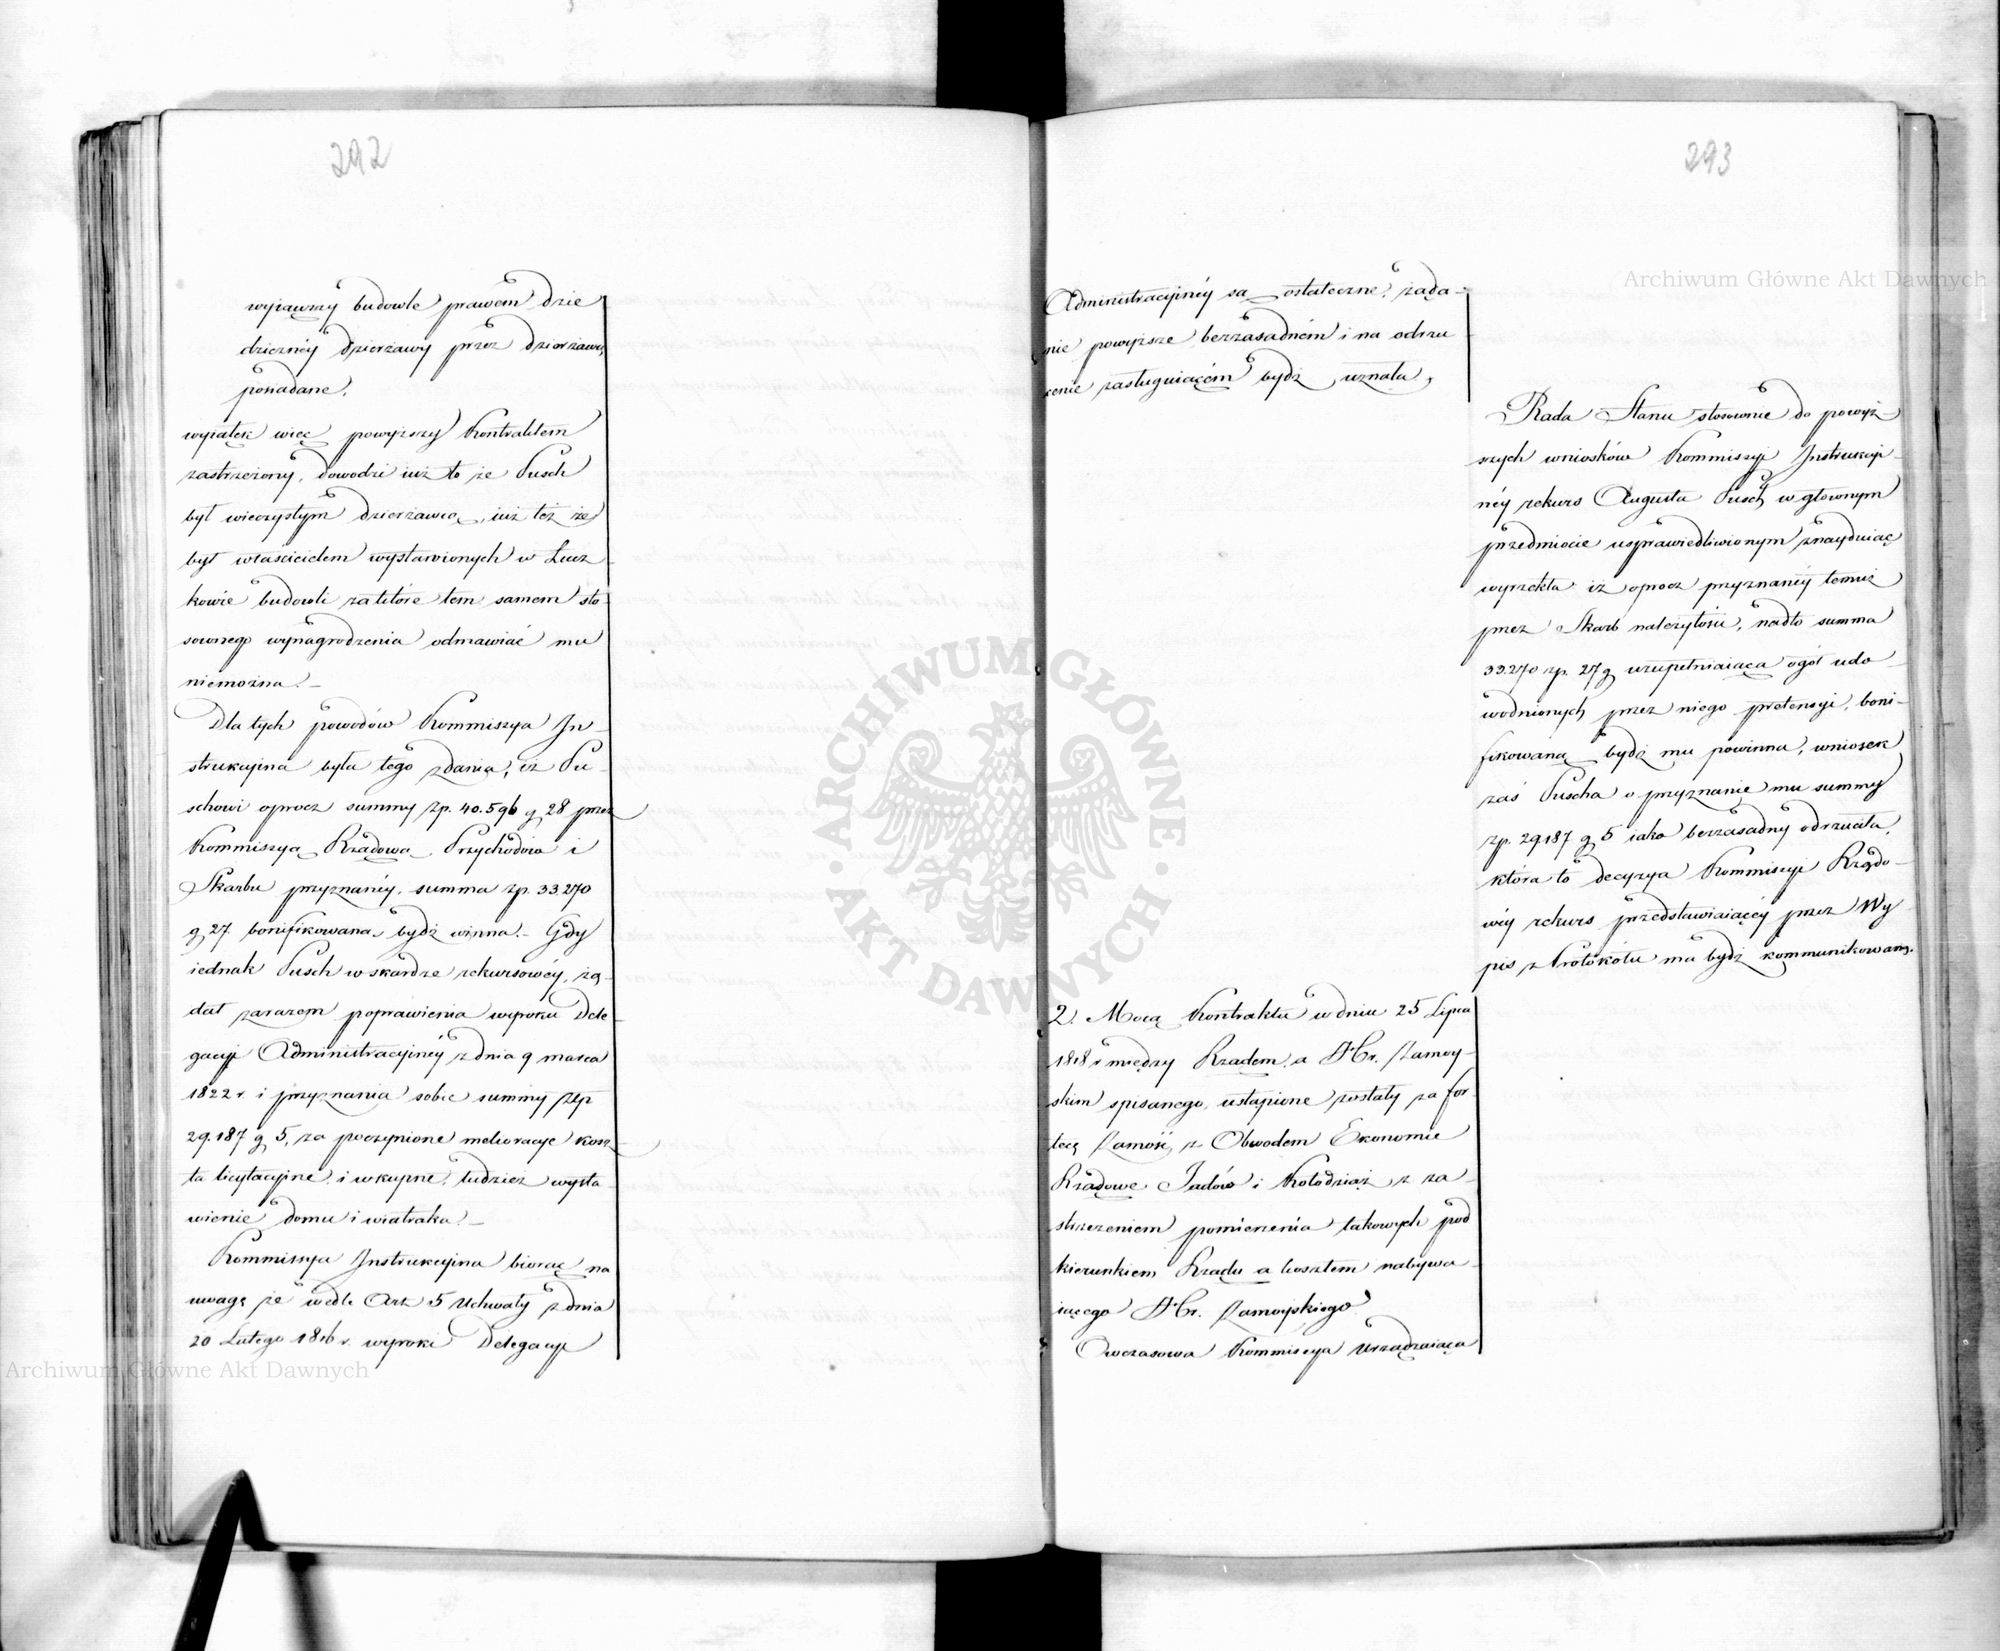 292
wyjąwszy budowle prawem dzie
dzicznéy dzierżawy przez dzierżawcę
posiadane.
wyiątek więc powyższy Kontraktem
zastrzeżony, dowodzi iuż to że Pusch
był wieczystym dzierżawcą, iuż też że
był właścicielem wystawionych w Łusz
kowie budowli za które tem samem sto-
sownego wynagrodzenia odmawiać mu
niemożna. –
Dla tych powodów Kommissya In-
strukcyina była tego zdania, iż Pu-
schowi oprocz summy Zp. 40.596 g 28 przez
Kommissyą Rządową Przychodów i
Skarbu przyznanéy, summa zp. 33.270
g 27. bonifikowaną bydź winna. – Gdy
iednak Pusch w skardze rekursowéy, żą-
dał zarazem poprawienia wyroku Dele-
gacyi Administracyinéy z dnia 9 marca
1822 r. i przyznania sobie summy złp
29.187 g 5, za poczynione melioracye kosz-
ta licytacyine, i wkupne, tudzież wysta-
wienie domu i wiatraka. –
Kommissya Instrukcyina biorąc na
uwagę że wedle Art. 5 Uchwały z dnia
20 Lutego 1816 r. wyroki Delegacyi
293
Administracyinéy są ostateczne, żąda-
nie powyższe bezzasadném i na odrzu
cenie zasługuiącém bydź uznała,
Rada Stanu stosownie do powyż-
szych wniosków Kommissyi Instrukcyi-
néy rekurs Augusta Pusch w głównym
przedmiocie usprawiedliwionym znayduiąc
wyrzekła iż oprocz przyznanéy temuż
przez Skarb należytości, nadto summa
33.270 zp. 27 g uzupełniaiąca ogół udo-
wodnionych przez niego pretensyi, boni-
fikowaną bydź mu powinna, wniosek
zaś Puscha o przyznanie mu summy
zp. 29.187 g 5 iako bezzasadny odrzuciła,
która to decyzya Kommissyi Rządo-
wéy rekurs przedstawiaiącéy przez Wy
pis z Protokółu ma bydź kommunikowaną.
2. Mocą Kontraktu w dniu 25 Lipca
1818 r między Rządem a Hr. Zamoy-
skim spisanego, ustąpione zostały za for-
tecę Zamość z Obwodem Ekonomie
Rządowe Jadów i Kołodziąż z za-
strzeżeniem pomierzenia takowych pod
kierunkiem Rządu a kosztem nabywa-
iącego Hr. Zamoyskiego.
Owczasowa Kommissya Urządzaiąca